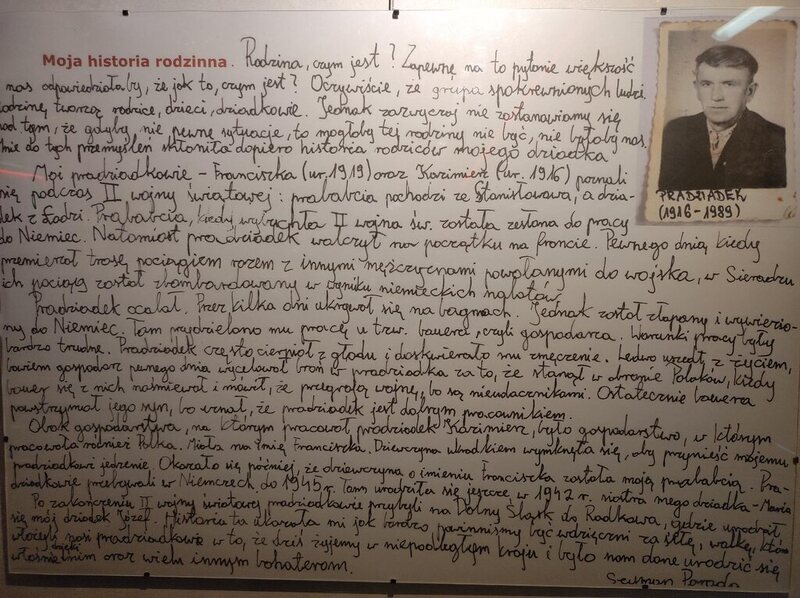 Moja historia rodzinna. Rodzina, czym jest? Zapewne na to pytanie większość
nas odpowiedziałaby, że jak to, czym jest? Oczywiście, że grupa spokrewnionych ludzi.
Rodzinę tworzą rodzice, dzieci, dziadkowie. Jednak zazwyczaj nie zastanawiamy się
nad tym, że gdyby nie pewne sytuacje, to mogłoby tej rodziny nie być, nie byłoby nas.
Mnie do tych przemyśleń skłoniła dopiero historia rodziców mojego dziadka.
Moi pradziadkowie - Franciszka (ur. 1919) oraz Kazimierz (ur. 1916) poznali
się podczas II wojny światowej: prababcia pochodzi ze Stanisławowa, a dzia-
dek z Łodzi. Prababcia, kiedy wybuchła II wojna św. została zesłana do pracy
do Niemiec. Natomiast pradziadek walczył na początku na froncie. Pewnego dnia, kiedy
przemierzał trasę pociągiem razem z innymi mężczyznami powołanymi do wojska, w Sieradzu
ich pociąg został zbombardowany w wyniku niemieckich nalotów.
Pradziadek ocalał. Przez kilka dni ukrywał się na bagnach. Jednak został złapany i wywiezio-
ny do Niemiec. Tam przydzielono mu pracę u tzw. bauera, czyli gospodarza. Warunki pracy były
bardzo trudne. Pradziadek często cierpiał z głodu i doskwierało mu zmęczenie. Ledwo uszedł z życiem,
bowiem gospodarz pewnego dnia wycelował broń w pradziadka za to, że stanął w obronie Polaków, kiedy
bauer się z nich naśmiewał i mówił, że przegrają wojnę, bo są nieudacznikami. Ostatecznie bauera
powstrzymał jego syn, bo uznał, że pradziadek jest dobrym pracownikiem.
Obok gospodarstwa, na którym pracował pradziadek Kazimierz, było gospodarstwo, w którym
pracowała również Polka. Miała na imię Franciszka. Dziewczyna ukradkiem wymknęła się, aby przynieść mojemu
pradziadkowi jedzenie. Okazało się później, że dziewczyna o imieniu Franciszka została moją prababcią. Pra-
dziadkowie przebywali w Niemczech do 1945 r. Tam urodziła się jeszcze w 1942 r. siostra mego dziadka - Maria
Po zakończeniu II wojny światowej pradziadkowie przybyli na Dolny Śląsk do Radkowa, gdzie urodził
się mój dziadek Józef. Historia ta ukazała mi jak bardzo powinniśmy być wdzięczni za siłę, walkę, którą
włożyli nasi pradziadkowie w to, że dziś żyjemy w niepodległym kraju i było nam dane urodzić się
dzięki
właśnie nim oraz wielu innym bohaterom.
PRADZIADEK
(1916-1989)